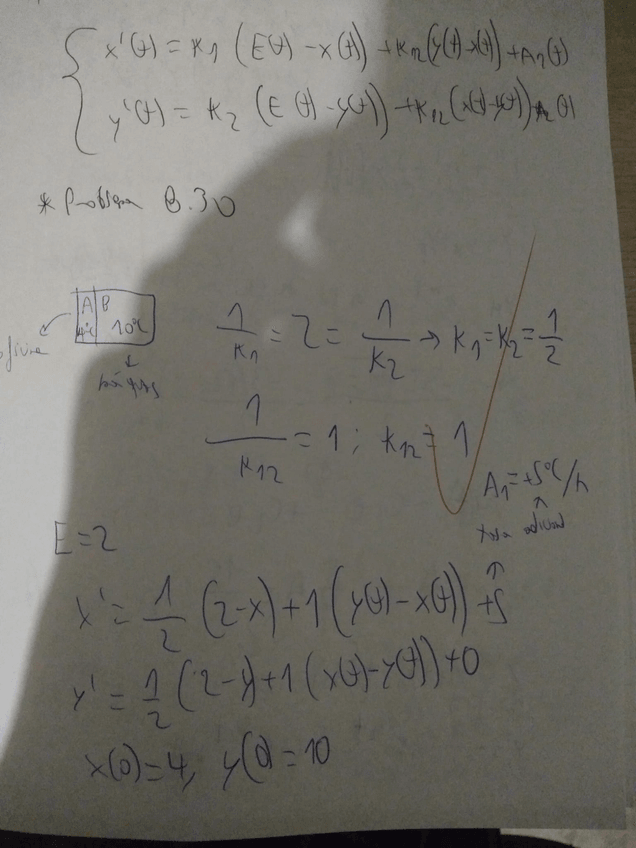 x'(t) = K1 (E(t) - x(t)) + K12(y(t)-x(t)) + A1(t)
y'(t) = K2 (E(t) - y(t)) + K12(x(t)-y(t)) + A2(t)
* Problema B.30
A B
4ºC 10ºC
1/K1 = 2 = 1/K2 → K1=K2=1/2
1/K12 = 1; K12 = 1
A1=+5ºC/h
E=2
x' = 1/2 (2-x)+1(y(t)-x(t)) +5
y' = 1/2 (2-y)+1(x(t)-y(t))+0
x(0)=4, y(0)=10